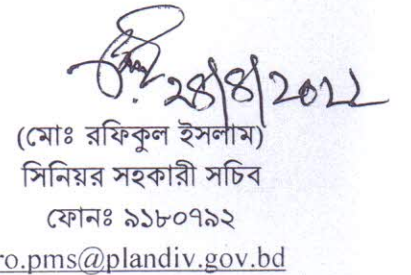 ২৪/৪/২০২২
(মোঃ রফিকুল ইসলাম)
সিনিয়র সহকারী সচিব
ফোনঃ ৯১৮০৭৯২
ro.pms@plandiv.gov.bd